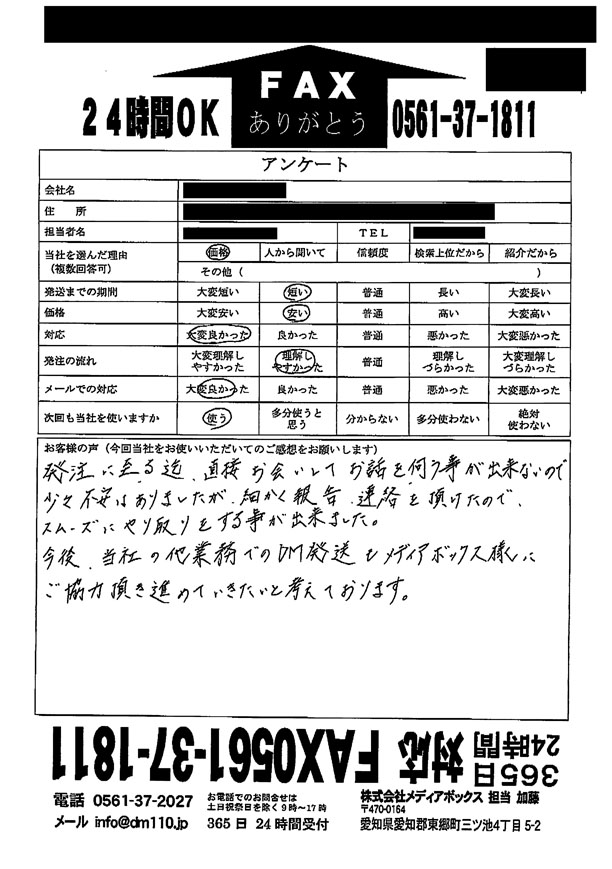 FAX
ありがとう
24時間OK
0561-37-1811
アンケート
会社名
住 所
担当者名 TEL
当社を選んだ理由（複数回答可） 価格 人から聞いて 信頼度 検索上位だから 紹介だから
その他（ ）
発送までの期間 大変短い 短い 普通 長い 大変長い
価格 大変安い 安い 普通 高い 大変高い
対応 大変良かった 良かった 普通 悪かった 大変悪かった
発注の流れ 大変理解しやすかった 理解しやすかった 普通 理解しづらかった 大変理解しづらかった
メールでの対応 大変良かった 良かった 普通 悪かった 大変悪かった
次回も当社を使いますか 使う 多分使うと思う 分からない 多分使わない 絶対使わない
お客様の声（今回当社をお使いいただいてのご感想をお願いします）
発注に至る迄、直接お会いしてお話を伺う事が出来ないので
少々不安はありましたが、細かく報告、連絡を頂けたので、
スムーズにやり取りをする事が出来ました。
今後、当社の他業務でのDM発送もメディアボックス様に
ご協力頂き進めていきたいと考えております。
365日24時間対応 FAX0561-37-1811
電話 0561-37-2027 お電話でのお問合せは土日祝祭日を除く9時～17時
メール info@dm110.jp 365日 24時間受付
株式会社メディアボックス 担当 加藤
〒470-0164
愛知県愛知郡東郷町三ツ池4丁目 5-2